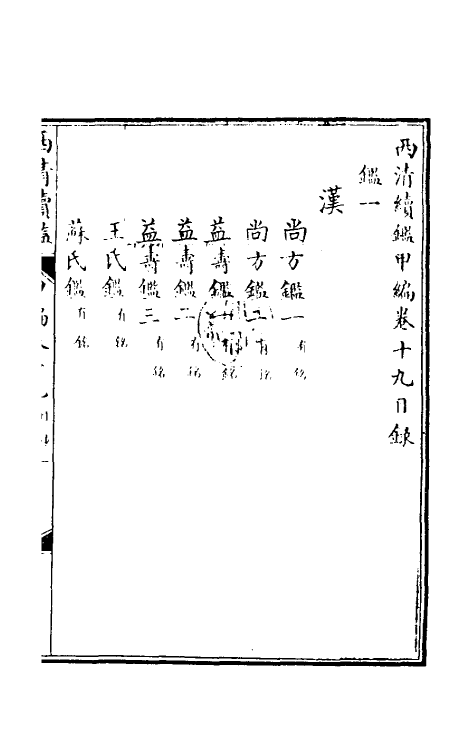 西清續鑑甲編卷十九目錄
鑑一
漢
尚方鑑一有銘
尚方鑑二有銘
益壽鑑一有銘
益壽鑑二有銘
益壽鑑三有銘
王氏鑑有銘
蘇氏鑑有銘
西清續鑑